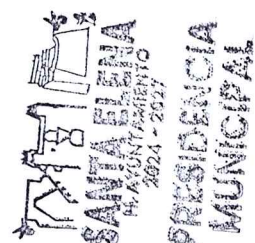 SANTA ELENA
H. AYUNTAMIENTO
2024 - 2027
PRESIDENCIA
MUNICIPAL